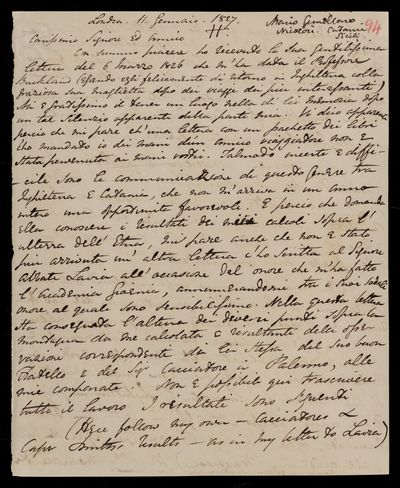 Londra. 11. Gennaio. 1827.
Mario Gemellaro.
Nicolosi. Catania
Sicili
94
Carissimo Signore ed amico
Con sommo piacere ho ricevuto la sua gentilissima
lettera del 6 Marzo 1826 che m'ha data il Professore
Buckland (essendo egli felicemente di ritorno in Inghilterra colla
graziosa sua moglietta dopo dei viaggi dei piu interessanti)
Mi è gratissimo il tener un luogo nella di lei memoria dopo
un tal silenzio apparente della parte mia. Vi dico apparente
perciò che mi pare ch'una lettera con un pachetto dei libri
c'ho mandato io dei mani d'un amico viaggiatore non è
stata pervenuta ai mani vostri. Talmodo incerte e diffi-
cile sono la communicazione di questo genere tra
Inghilterra e Catania, che non m'arriva in un anno
intero una opportunita favorevole. E perciò che domanda
ella conoscere i resultati dei miei calcoli sopra l'
alterza dell' Etna, mi pare anche che non è stato
più arrivata un' altra lettera c'ho scritta al Signore
Abbate Lavia all' occasione del onore che m'ha fatto
l'Academia Gioenia, annumerandomi tra i suoi
onore al quale sono sensibilissimo. Nella questa lettera
sta consegnata l'alterza dei diversi punti sopra la
montagna da me calcolata e resultante delle osser-
vazioni correspondente da lei stesso del suo buon
Fratello e del Sigr Cacciatore a Palermo, alle
mie comparate. Non è possibile qui trascrivere
tutto il lavoro I resultati sono seguenti
(Here follow my own — Cacciatores &
Capn Smiths results — as in my letter to Lavia)